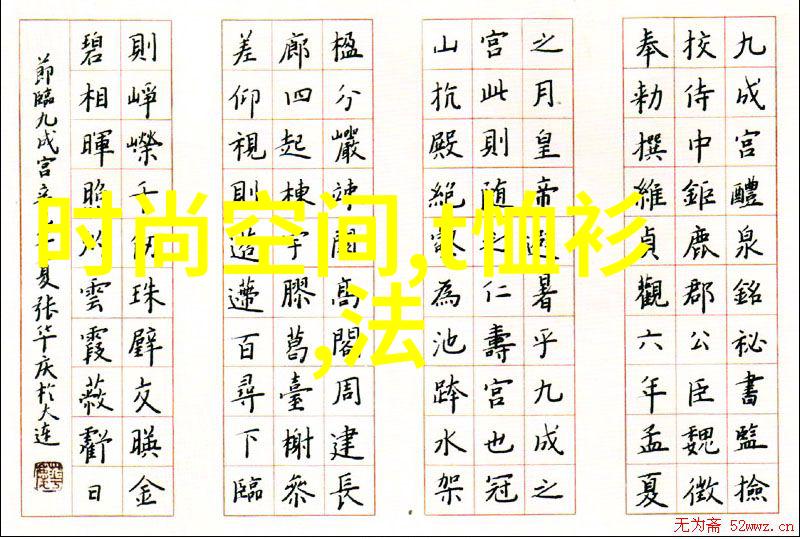 九成宫醴泉銘祕書監撿
挍侍中鉅鹿郡公臣魏徵
奉勑撰維貞觀六年孟夏
之月皇帝避暑乎九成之
宫此則随之仁壽宫也冠
山抗殿絶壑為池跨水架
楹分巖竦闕高閣周建長
廊四起棟宇膠葛臺榭參
差仰視則迢遰百尋下臨
則峥嵘千仞珠璧交暎金
碧相暉照灼雲霞蔽虧日
節臨九成宫夏张华庆於大连
时尚空间,t恤衫
,法
无为斋 52wwz.cn